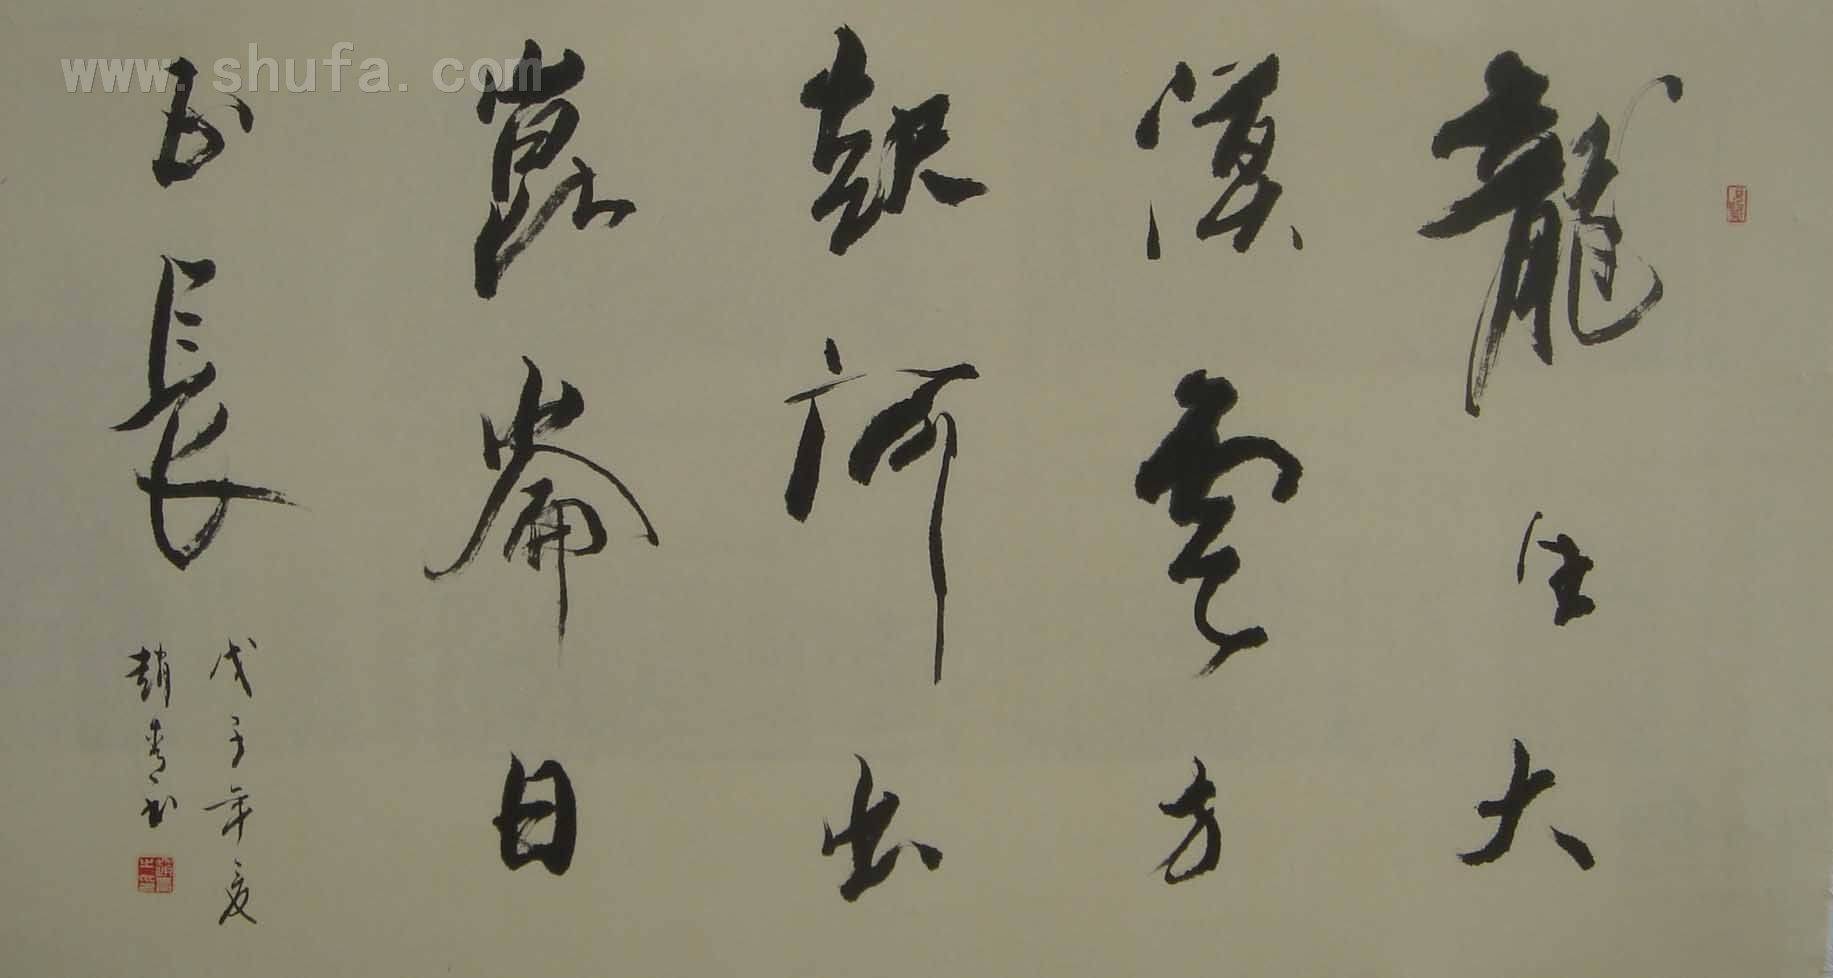 龍住大
漠雲方
起河出
崑崙日
正長
戊子年夏
趙青書
www.shufa.com